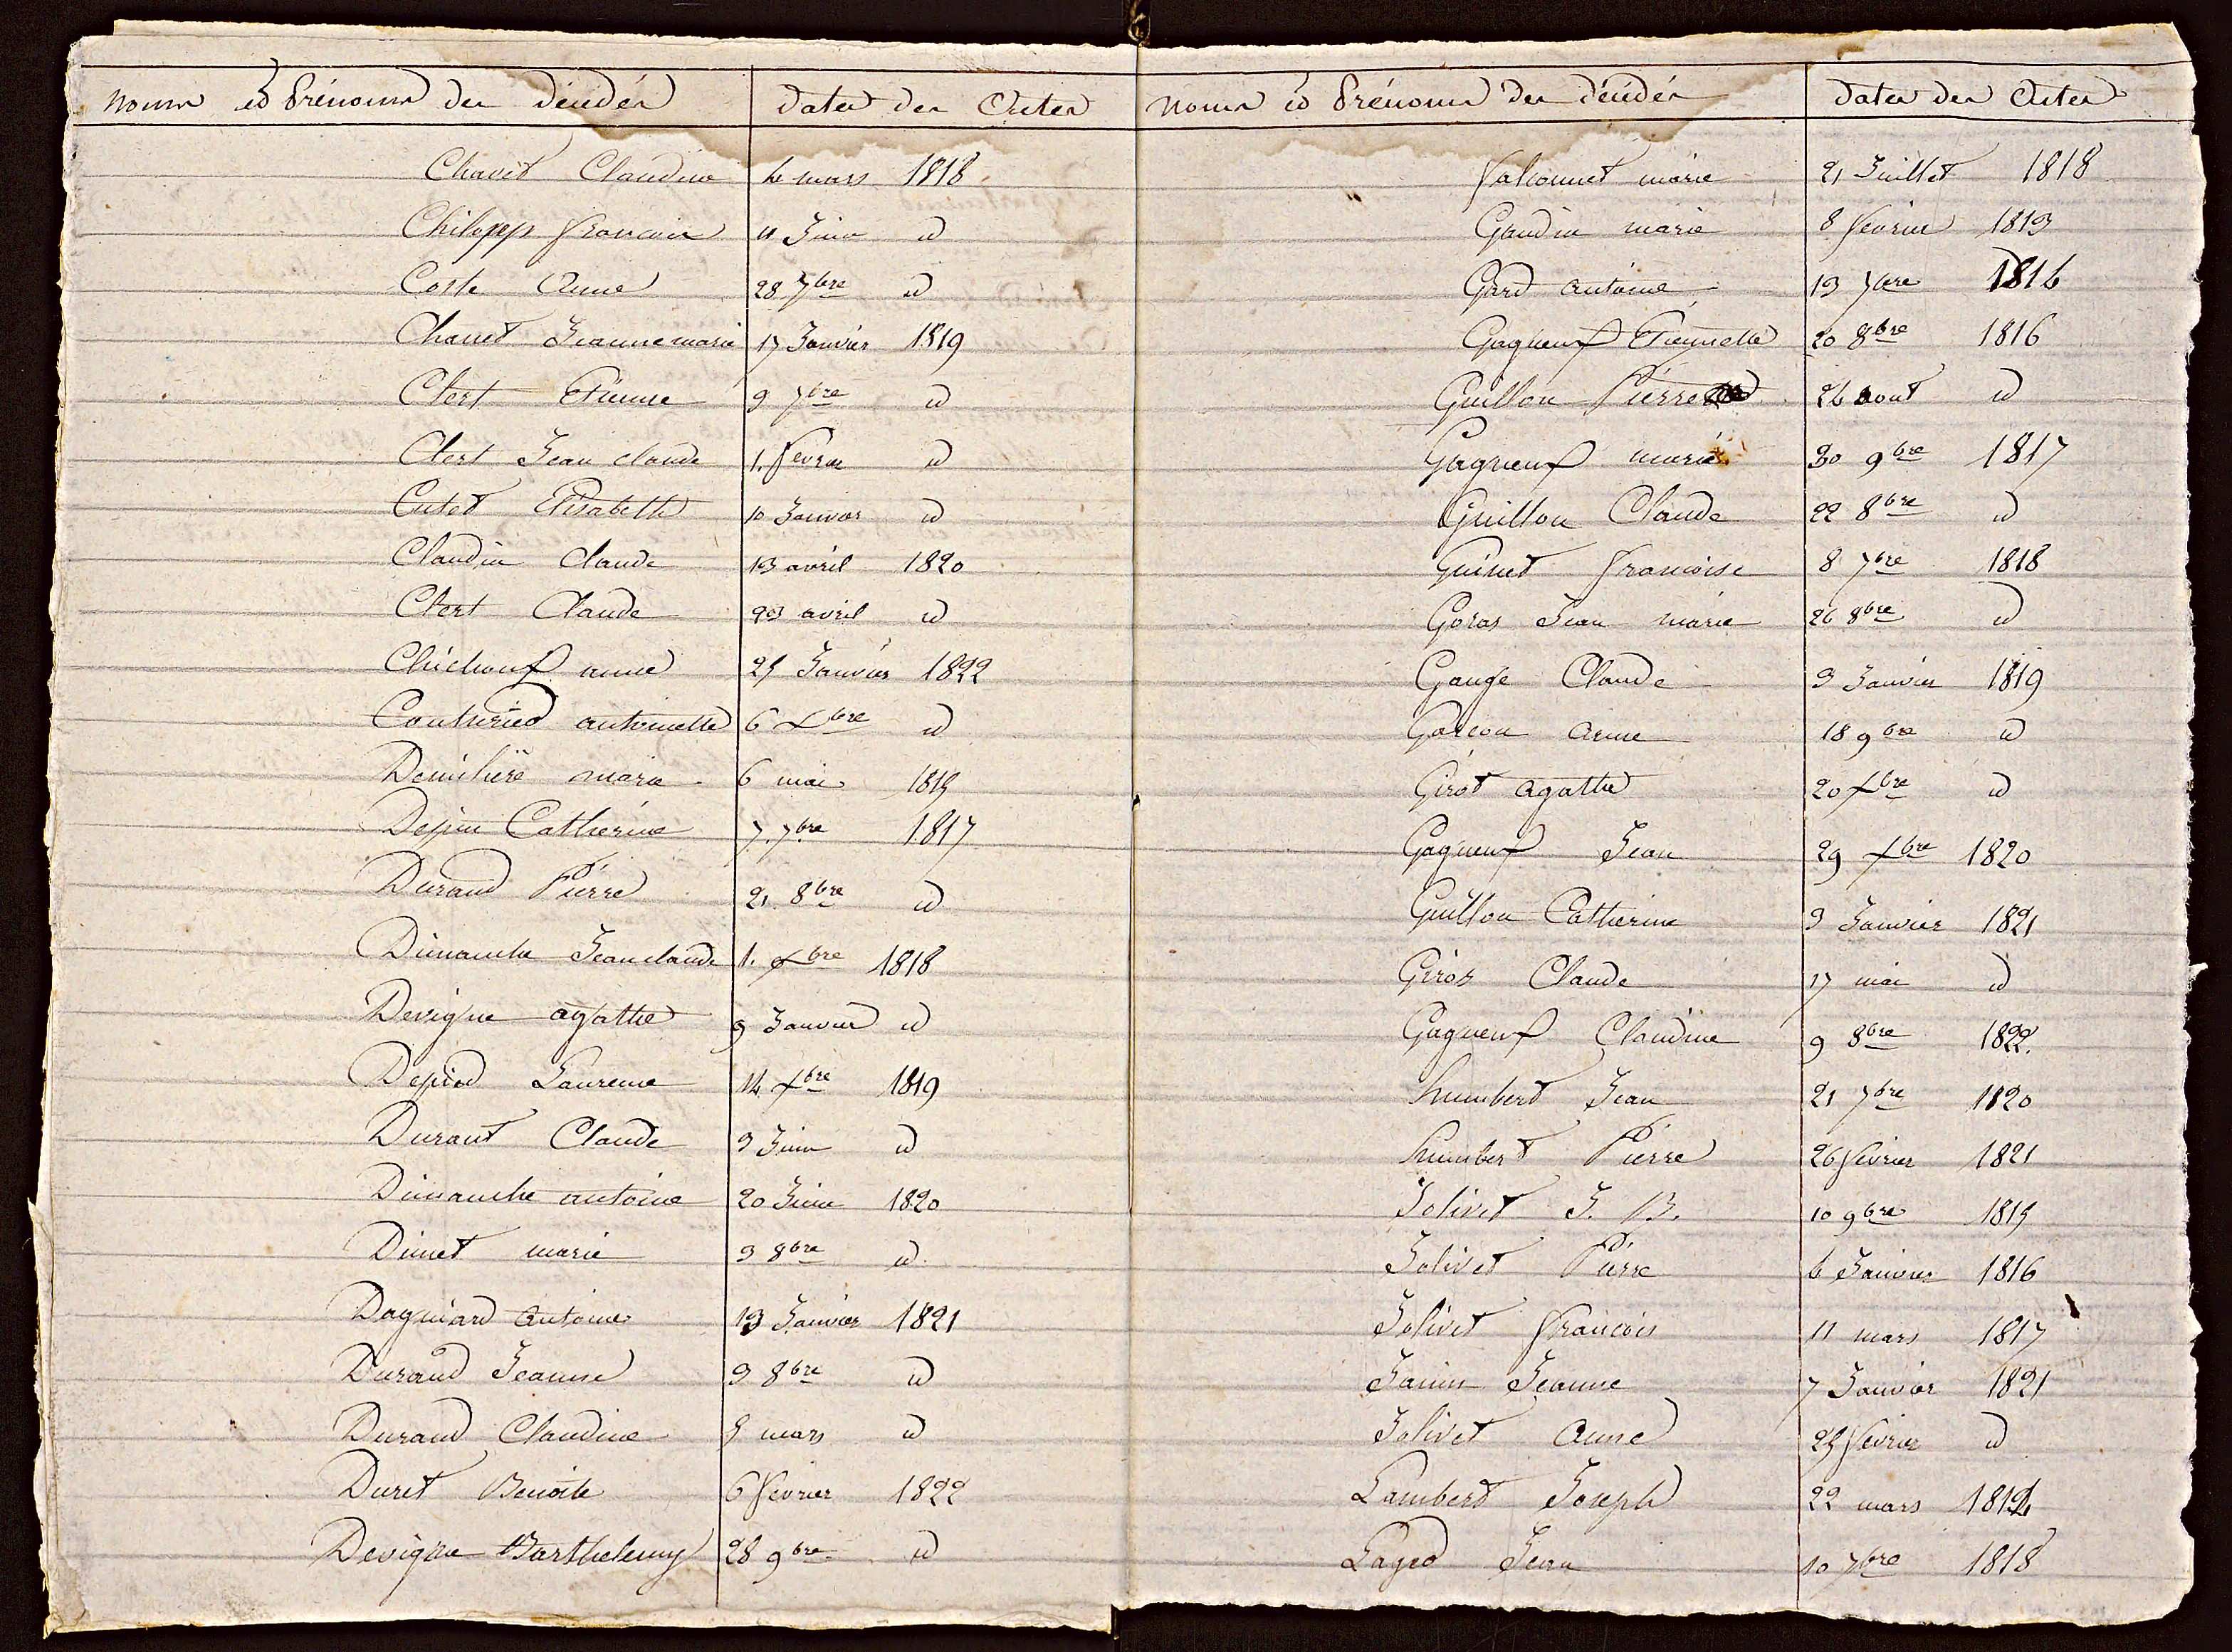 noms et Prénoms des décédés dates des Actes
Chavet Claudine 4 mars 1818
Philipp francois 11 Juin id
Coste Anne 28 7bre id
Chanet Jeanne marie 17 Janvier 1819
Clert Etienne 9 7bre id
Clert Jean claude 1. fevrier id
Cutet Elisabeth 10 Janvier id
Claudin Claude 13 avril 1820
Clert Claude 23 avril id
Chichouf anne 25 Janvier 1822
antoinette 6 Xbre id
marie 6 mai 1815
Catherine 7. 7bre 1817
Durand Pierre 21 8bre id
Dimanche Jean claude 1. Xbre 1818
Devigne agathe 9 Janvier id
14 Xbre 1819
Durant Claude 9 Juin id
Dimanche antoine 20 Juin 1820
Dimet marie 9 8bre id
Dagniard Antoine 13 Janvier 1821
Durand Jeanne 9 8bre id
Durand Claudine 5 mars id
Duret Benoite 6 fevrier 1822
Devigne Barthelemy 28 9bre id
noms et Prénoms des décédés dates des Actes
Falconnet marie 21 Juillet 1818
Gaudin marie 8 fevrier 1813
Gard antoine 13 7bre 1816
Gagneuf 20 8bre 1816
Guillon Pierre 26 aout id
Gagneuf marie 30 9bre 1817
Guillon Claude 22 8bre id
Guinet francoise 8 7bre 1818
Goras Jean marie 26 8bre id
Gauge Claude 3 Janvier 1819
Garcon Anne 18 9bre id
Girot agathe 20 Xbre id
Gagneuf Jean 29 Xbre 1820
Guillon Catherine 3 Janvier 1821
Giros Claude 17 mai id
Gagneuf Claudine 9 8bre 1822.
humbert Jean 21 7bre 1820
humbert Pierre 26 fevrier 1821
Jolivet J. B. 10 9bre 1815
Jolivet Pierre 6 Janvier 1816
Jolivet francois 11 mars 1817
Janin Jeanne 7 Janvier 1821
Jolivet Anne 25 fevrier id
Lambert Joseph 22 mars 1814
Laged Jean 10 7bre 1818